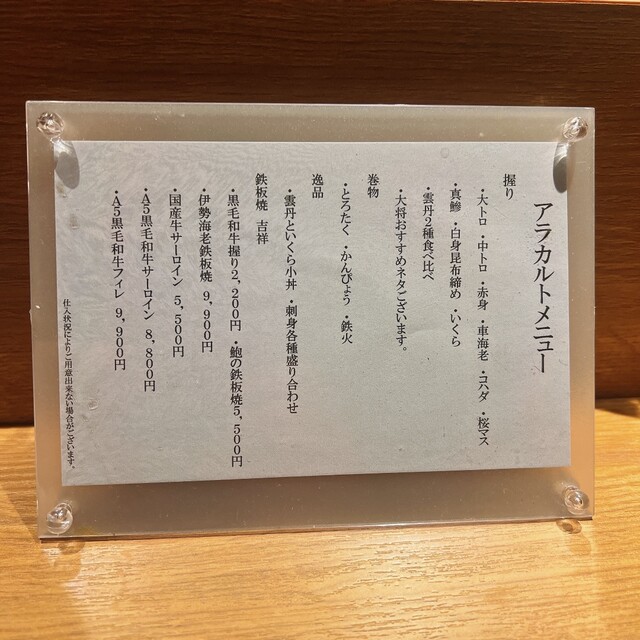 アラカルトメニュー
握り
・大トロ ・中トロ ・赤身 ・車海老 ・コハダ ・桜マス
・真鯵 ・白身昆布締め ・いくら
・雲丹2種食べ比べ
・大将おすすめネタございます。
巻物
・とろたく ・かんぴょう ・鉄火
逸品
・雲丹といくら小丼 ・刺身各種盛り合わせ
鉄板焼 吉祥
・黒毛和牛握り2,200円 ・鮑の鉄板焼5,500円
・伊勢海老鉄板焼 9,900円
・国産牛サーロイン 5,500円
・A5黒毛和牛サーロイン 8,800円
・A5黒毛和牛フィレ 9,900円
仕入状況によりご用意出来ない場合がございます。